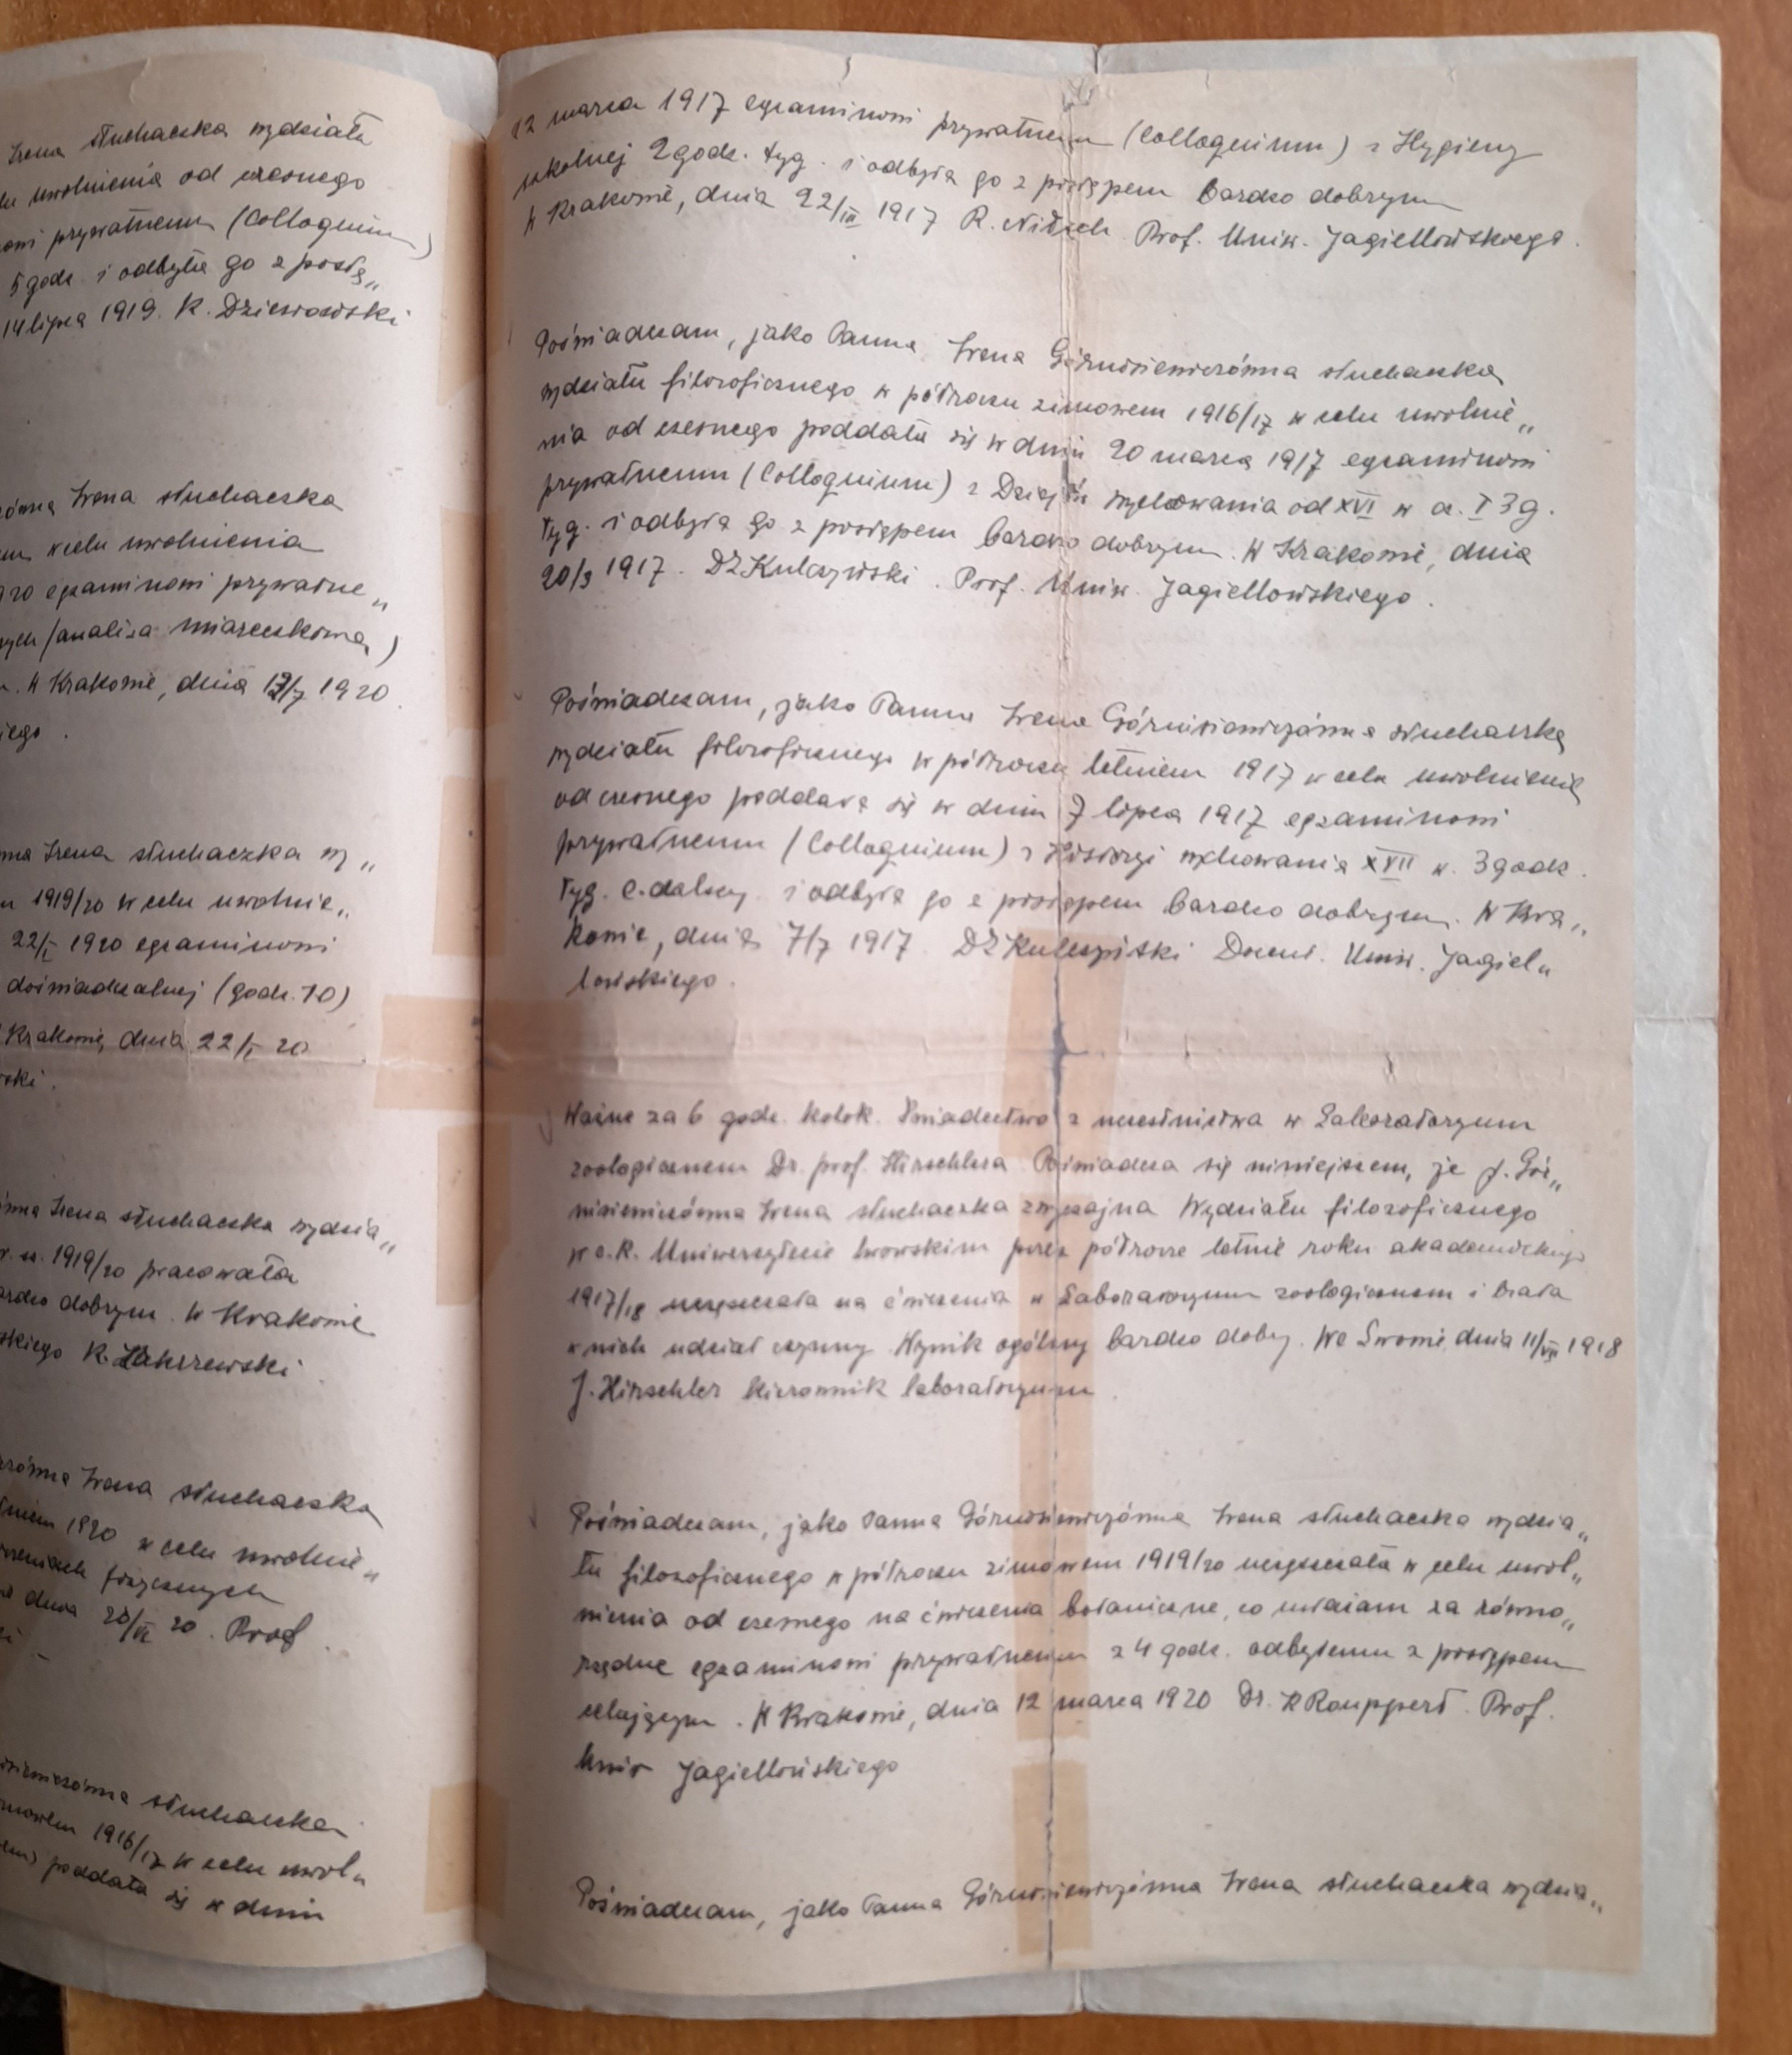 Irena słuchaczka wydziału
uwolnienia od czesnego
prywatnemu (Colloquium)
5 godz. i odbyła go z postę„
14 lipca 1919. K. Dziewoński
Irena słuchaczka
w celu uwolnienia
egzaminowi prywatne„
(analiza miareczkowa)
W Krakowie, dnia 1920.
Irena słuchaczka wy„
1919/20 w celu uwolnie„
22/I 1920 egzaminowi
doświadczalnej (godz. 10)
Krakowie, dnia 22/I 20
Irena słuchaczka wydzia„
1919/20 pracowała
bardzo dobrym. W Krakowie
K. Zakrzewski
Irena słuchaczka
1920 w celu uwolnie„
fizycznych
dnia 20. Prof.
słuchaczka
1916/17 w celu uwol„
poddała się w dniu
12 marca 1917 egzaminowi prywatnemu (Colloquium) z Hygieny
szkolnej 2 godz. tyg. i odbyła go z postępem bardzo dobrym
W Krakowie, dnia 22/III 1917 R. Nitsch. Prof. Uniw. Jagiellońskiego.
Poświadczam, jako Panna Irena Górnisiewiczówna słuchaczka
wydziału filozoficznego w półroczu zimowem 1916/17 w celu uwolnie„
nia od czesnego poddała się w dniu 20 marca 1917 egzaminowi
prywatnemu (Colloquium) z Dziejów wychowania od XVI w c. I 3 g.
tyg. i odbyła go z postępem bardzo dobrym. W Krakowie, dnia
20/3 1917. Dr Kulczyński. Prof. Uniw. Jagiellońskiego.
Poświadczam, jako Panna Irena Górnisiewiczówna słuchaczka
wydziału filozoficznego w półroczu letniem 1917 w celu uwolnienia
od czesnego poddała się w dniu 7 lipca 1917 egzaminowi
prywatnemu (Colloquium) z Historyi wychowania XVII w. 3 godz.
tyg. c. dalszy i odbyła go z postępem bardzo dobrym. W Kra„
kowie, dnia 7/7 1917. Docent. Uniw. Jagiel„
lońskiego.
Ważne za 6 godz. kolok. Świadectwo z uczestnictwa w Laboratoryum
zoologicznem Dr. prof. Hirschlera Poświadcza się niniejszem, że p. Gór„
nisiewiczówna Irena słuchaczka zwyczajna Wydziału filozoficznego
w c. k. Uniwersytecie lwowskim przez półrocze letnie roku akademickiego
1917/18 uczęszczała na ćwiczenia w Laboratoryum zoologicznem i brała
w nich udział czynny. Wynik ogólny bardzo dobry. We Lwowie, dnia 11/VII 1918
J. Hirschler kierownik laboratoryum
Poświadczam, jako Panna Górnisiewiczówna Irena słuchaczka wydzia„
łu filozoficznego w półroczu zimowem 1919/20 uczęszczała w celu uwol„
nienia od czesnego na ćwiczenia botaniczne, co uważam za równo„
rzędne egzaminowi prywatnemu z 4 godz. odbytemu z postępem
celującym. W Krakowie, dnia 12 marca 1920 Dr. K Rouppert. Prof.
Uniw Jagiellońskiego
Poświadczam, jako Panna Górnisiewiczówna Irena słuchaczka wydzia„